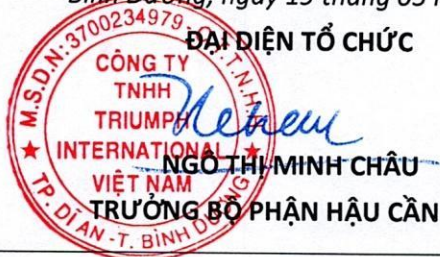 Bình Dương, ngày 15 tháng 05
ĐẠI DIỆN TỔ CHỨC
M.S.D.N: 3700234979
T.N.H.H
CÔNG TY
TNHH
TRIUMPH
INTERNATIONAL
VIỆT NAM
TP. DĨ AN - T. BÌNH DƯƠNG
NGÔ THỊ MINH CHÂU
TRƯỞNG BỘ PHẬN HẬU CẦN